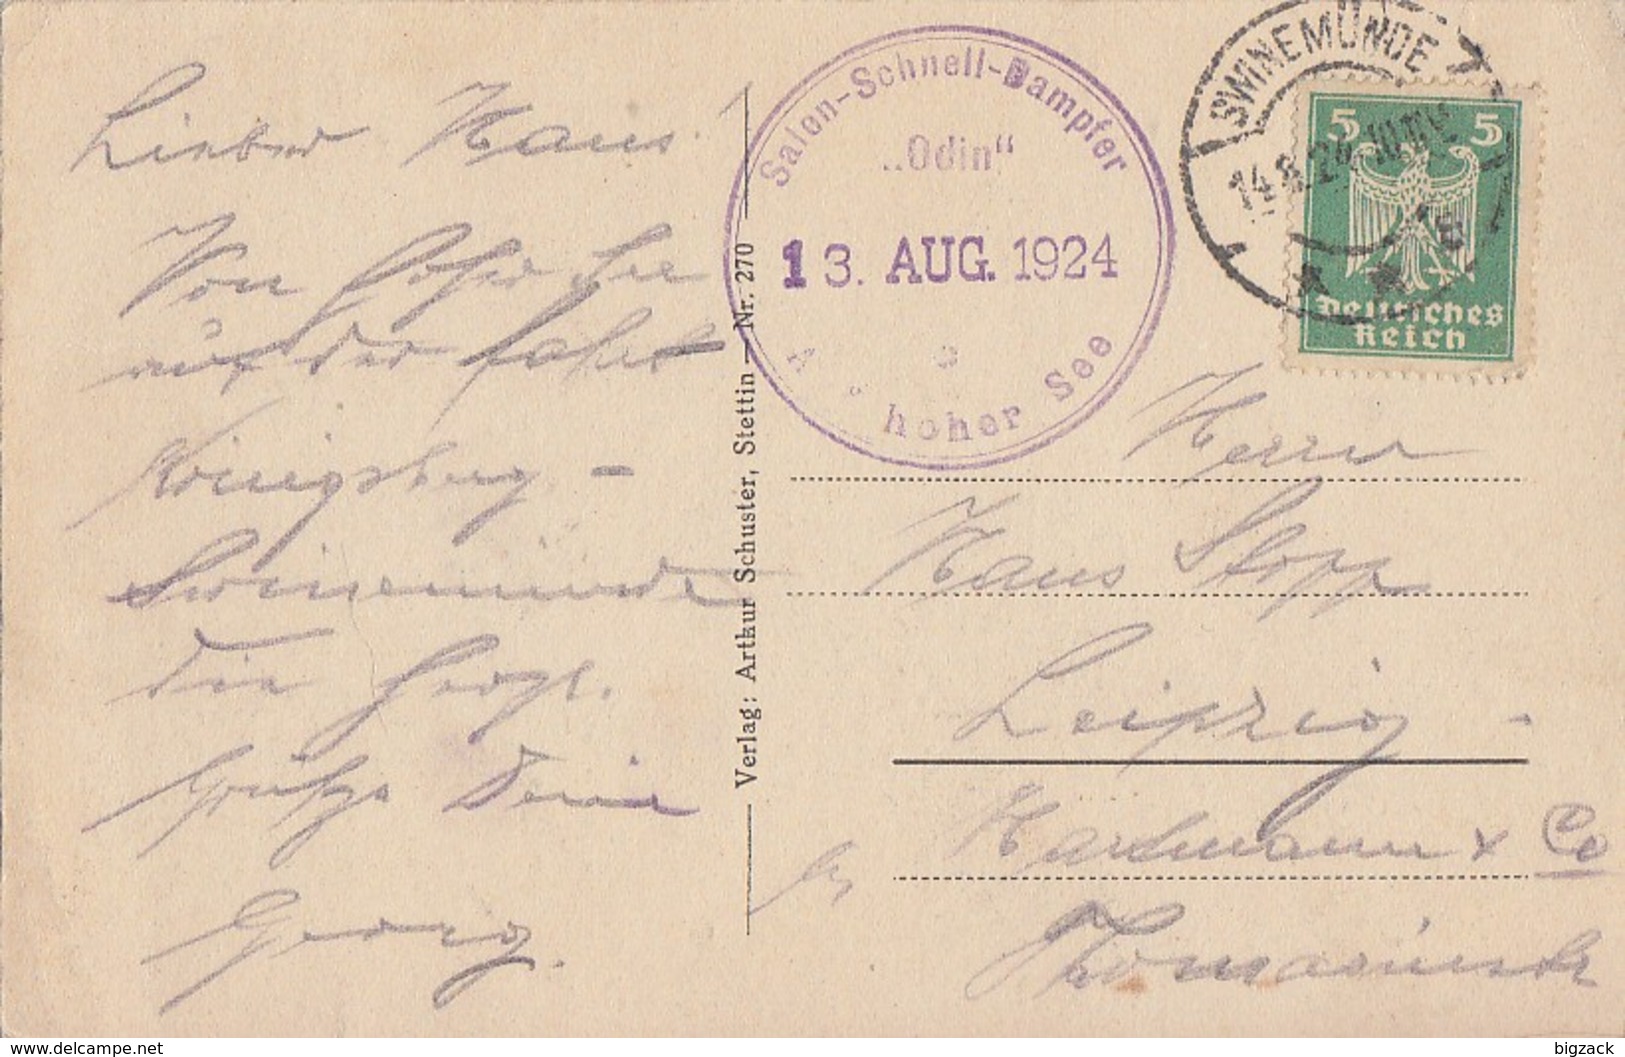 Lieber Hans.
Von hoher See
auf der Fahrt
Königsberg –
Swinemünde
die herzl.
Grüße Dein
Georg.
Verlag: Arthur Schuster, Stettin — Nr. 270
Salon-Schnell-Dampfer
„Odin“
13. AUG. 1924
hoher See
SWINEMÜNDE
14.8.24
5 5
Deutsches
Reich
Herrn
Hans Stopp
Leipzig -
Hartmann & Co
www.delcampe.net
bigzack